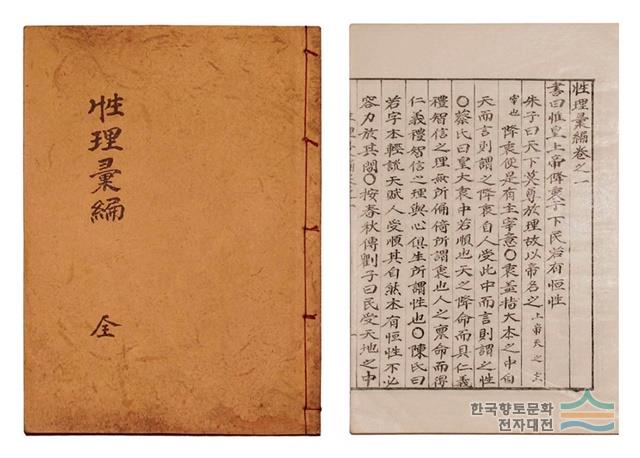 性理彙編
全
性理彙編卷之一
書曰惟皇上帝降衷于下民若有恒性
朱子曰天下莫尊於理故以帝名之上帝天之主
宰也降衷便是有主宰意〇衷盖指大本之中自
天而言則謂之降衷自人受此中而言則謂之性
〇蔡氏曰皇大衷中若順也天之降命而具仁義
禮智信之理無所偏倚所謂衷也人之禀命而得
仁義禮智信之理與心俱生所謂性也〇陳氏曰
若字本輕說天賦人受順其自然本有恒性不必
容力放其間〇按春秋傳劉子曰民受天地之中
한국향토문화
전자대전